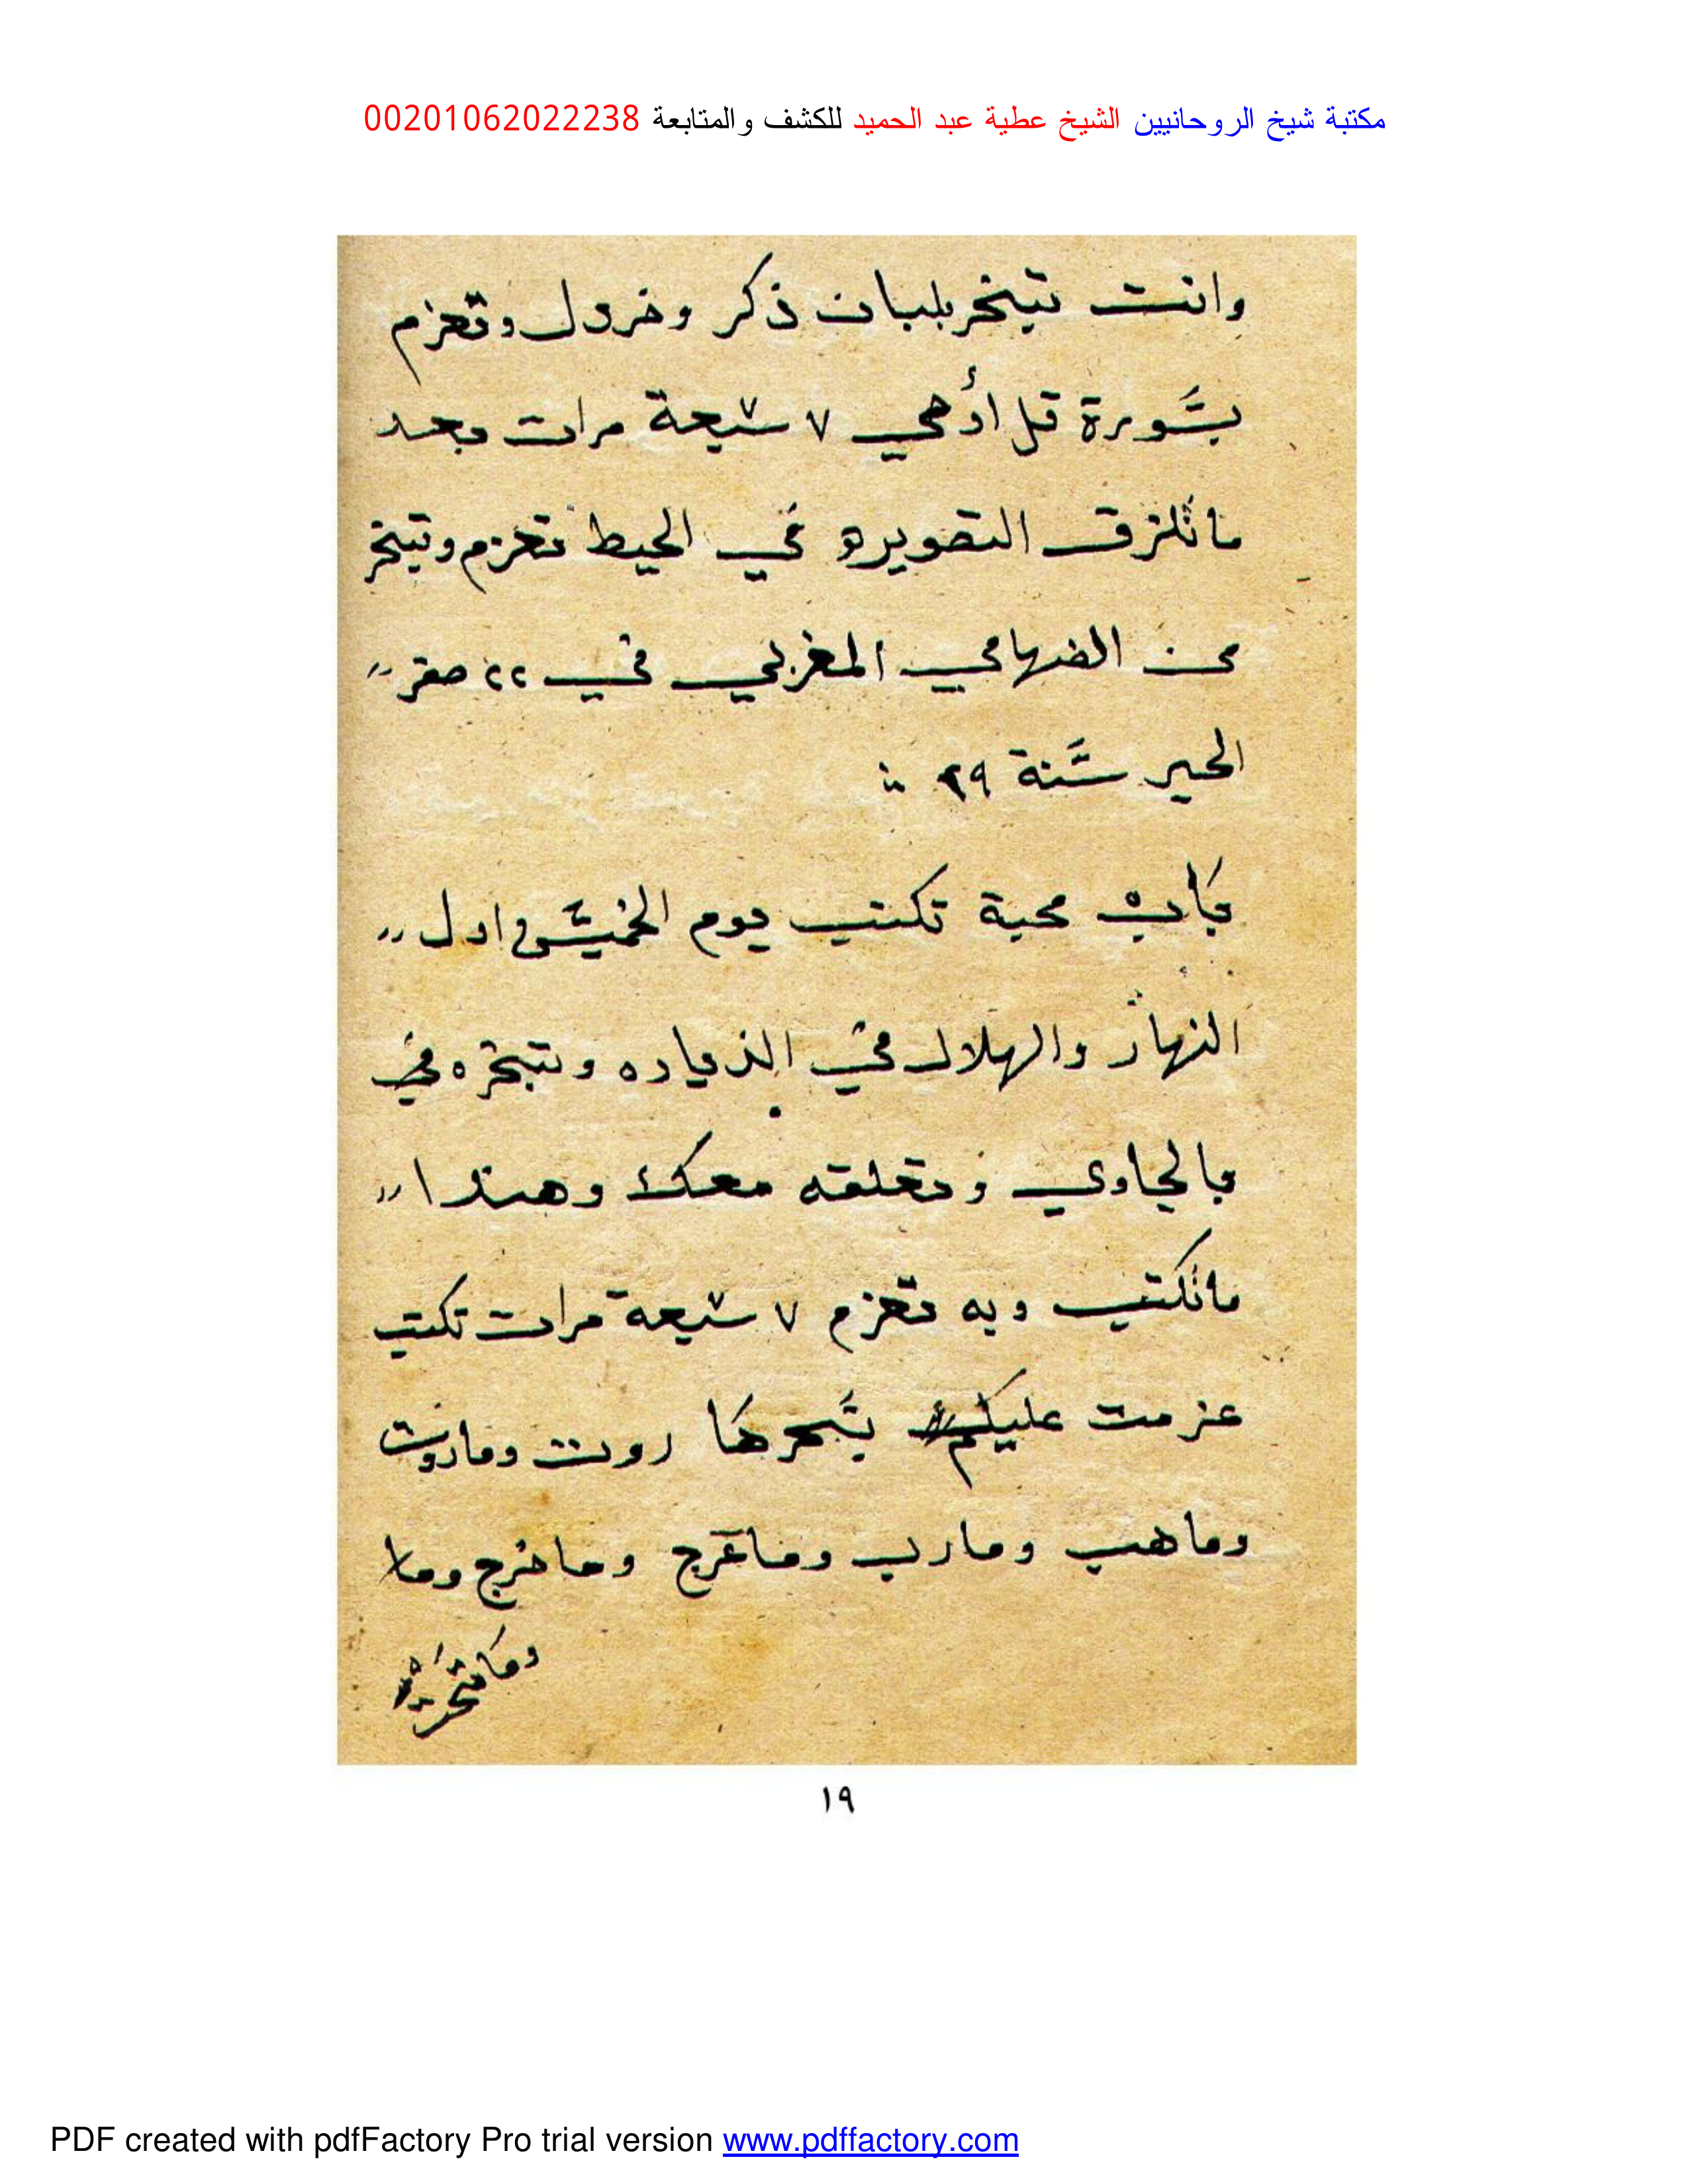 مكتبة شيخ الروحانيين الشيخ عطية عبد الحميد للكشف والمتابعة 00201062022238
وانت تبخر بلبان ذكر وخردل وتعزم
بسورة قل أوحي ٧ سبعة مرات بعد
ماتلزق التصويره في الحيط تعزم وتبخر
عن المغربي في ٢٢ صفر
الخير سنة ٢٩
باب محبة تكتب يوم الخميس في اول
النهار والهلال في الزياده وتبخره
بالجاوي وتعلقه معك وهندا
ماتكتب وبه تعزم ٧ سبعة مرات تكتب
عزمت عليكم بسحرها روت وماروت
وماهب ومارب وماعرج وماخرج وما
١٩
PDF created with pdfFactory Pro trial version www.pdffactory.com